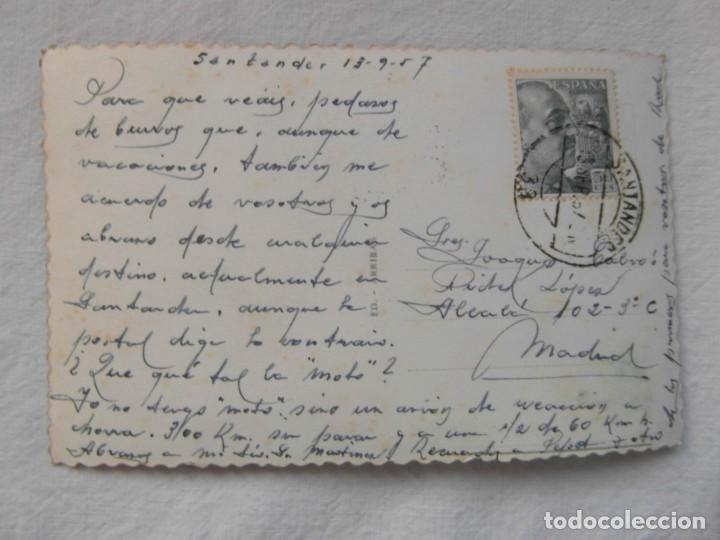 Santander 13-9-57
Para que veáis, pedazos
de burros que, aunque de
vacaciones, también me
acuerdo de vosotros y os
abrazo desde cualquier
destino, actualmente en
Santander, aunque la
postal diga lo contrario.
¿Que que tal la "moto"?
Yo no tengo "moto" sino un avión de reacción a
chorro. 300 Km. sin parar y a una 1/2 de 60 Km. h.
Abrazos a mi Recuerdos a y otro
de los primeros para vosotros de
ESPAÑA
SANTANDER
ED. ARRIBAS
Sres. Joaquín Calvo
López
Alcalá 102-3º C
Madrid
todocoleccion
todocoleccion.net